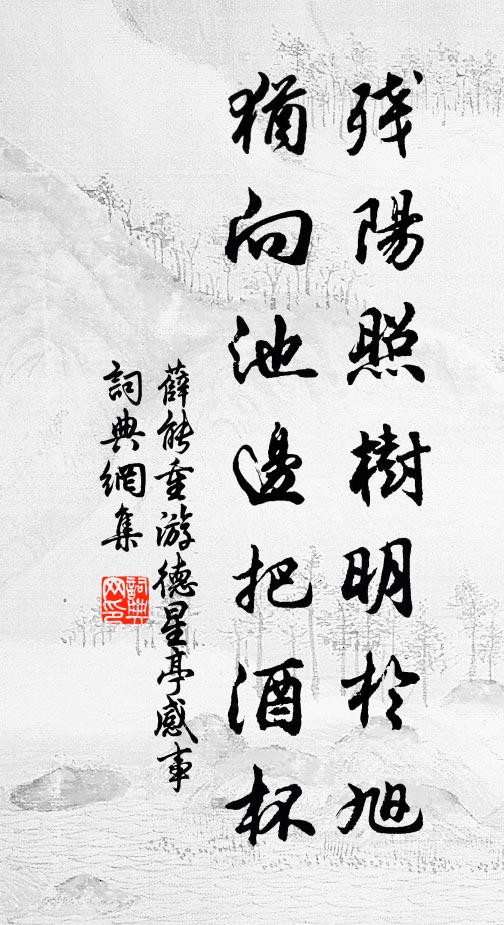 残陽照樹明於旭
猶向池邊把酒杯
薛能重游德星亭感事
詞典網集